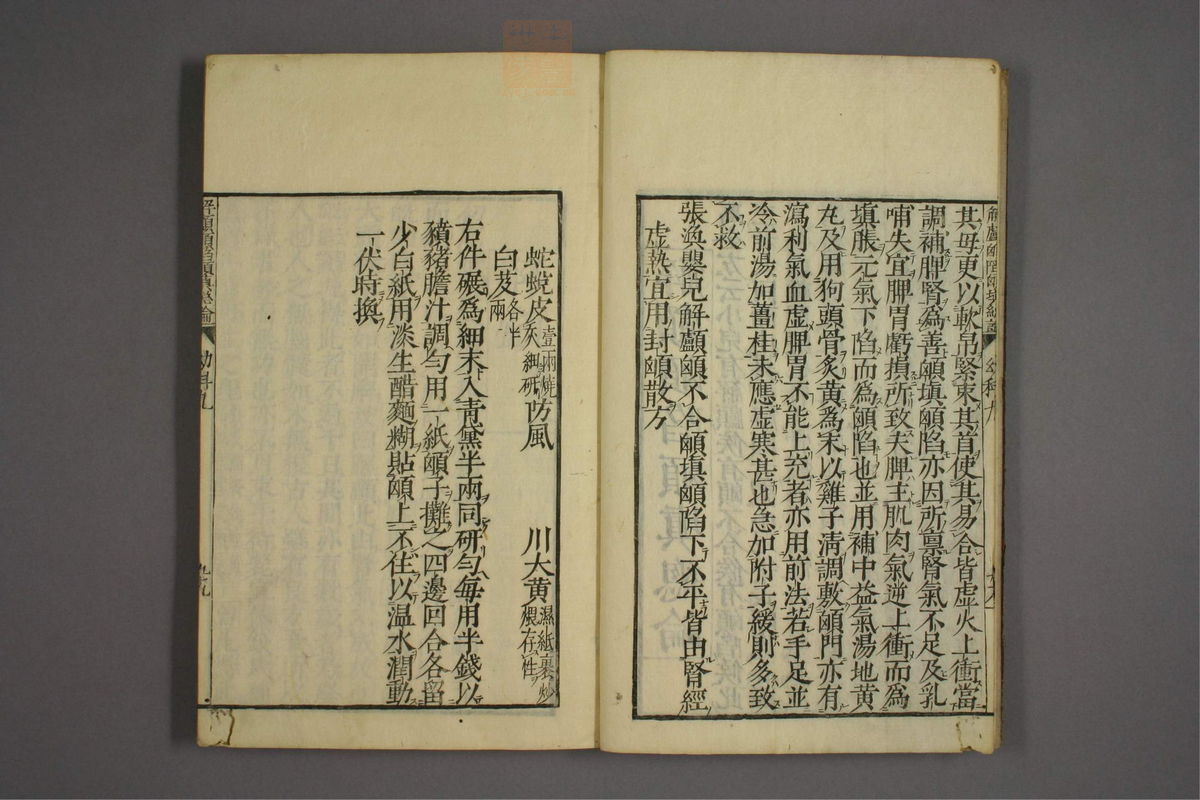 其母更以軟帛緊束其首使其易合皆虛火上衝當
調補脾腎爲善顖填顖陷亦因所禀腎氣不足及乳
哺失宜脾胃虧損所致夫脾主肌肉氣逆上衝而爲
填脹元氣下陷而爲顖陷也並用補中益氣湯地黃
丸及用狗頭骨炙黃爲末以雞子清調敷顖門亦有
瀉利氣血虛脾胃不能上充者亦用前法若手足並
冷前湯加薑桂未應虛寒甚也急加附子緩則多致
不救
張渙嬰兒解顱顖不合顖填顖陷下不平皆由腎經
虛熱宜用封顖散方
蛇蛻皮壹兩燒灰細研 防風 川大黃濕紙裹炒煨存性
白芨各半兩
右件碾爲細末入青黛半兩同研勻每用半錢以
豶猪膽汁調勻用一紙顖子攤之四邊回合各留
少白紙用淡生醋麵糊貼顖上不住以温水潤動
一伏時換